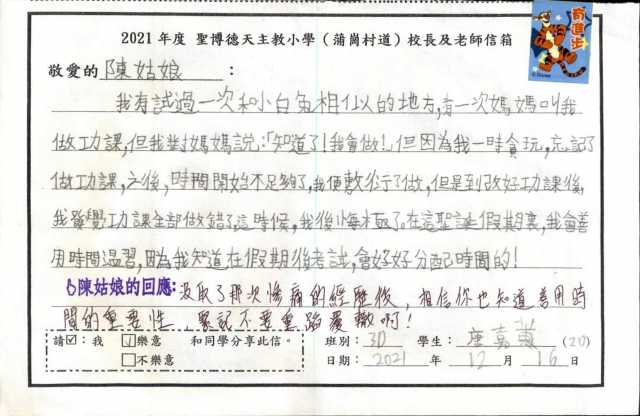 2021 年度 聖博德天主教小學（蒲崗村道）校長及老師信箱
有進步
敬愛的陳姑娘：
我有試過一次和小白兔相似的地方，有一次媽媽叫我
做功課，但我對媽媽說：「知道了！我會做！」但因為我一時貪玩，忘記了
做功課，之後，時間開始不足夠了，我便敷衍了做，但是到改好功課後，
我發覺功課全部做錯了。這時候，我後悔極了。在這聖誕假期裏，我會善
用時間溫習，因為我知道在假期後考試，會好好分配時間的！
陳姑娘的回應：汲取了那次慘痛的經歷後，相信你也知道善用時
間的重要性，緊記不要重蹈覆轍啊！
請☑：我 ☑樂意 和同學分享此信。 班別：3D 學生：唐嘉 (20)
□不樂意 日期：2021 年 12 月 16 日